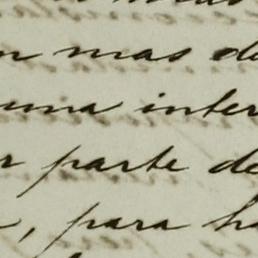 mas de
una inter
r parte de
, para ha